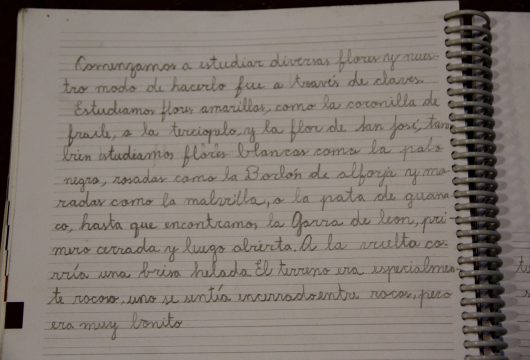 Comenzamos a estudiar diversas flores y nues-
tro modo de hacerlo fue a través de claves.
Estudiamos flores amarillas, como la coronilla de
fraile, o la terciopelo, y la flor de San José, tam
bien estudiamos flores blancas como la palo
negro, rosadas como la Borlón de alforja y mo-
radas como la malvilla, o la pata de guana
co, hasta que encontramos la Garra de león, pri-
mero cerrada y luego abierta. A la vuelta co-
rría una brisa helada El terreno era especialmen-
te rocoso, uno se sentía encerrado entre rocas, pero
era muy bonito